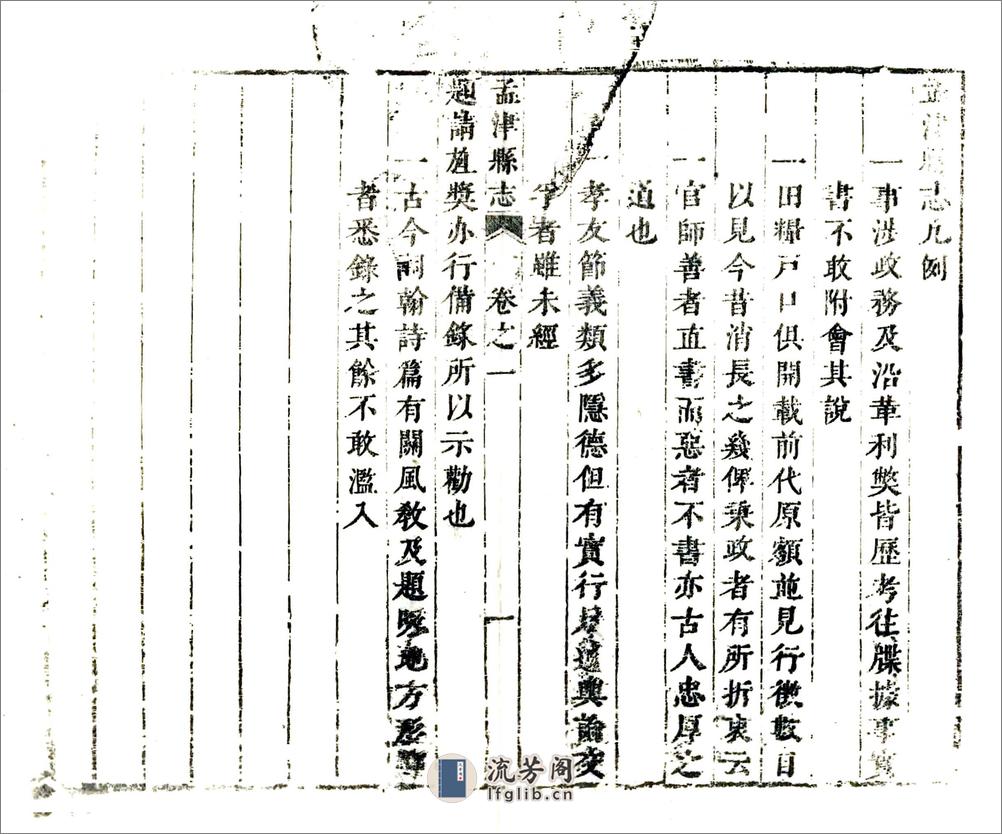 孟津縣志凡例
一事涉政務及沿革利獘皆歷考往牒據事實
書不敢附會其說
一田糧戶口俱開載前代原額並見行徵數目
以見今昔消長之幾俾秉政者有所折衷云
一官師善者直書而惡者不書亦古人忠厚之
道也
一孝友節義類多隱德但有實行輿論交
孚者雖未經
孟津縣志 卷之一 一
題請旌獎亦行備錄所以示勸也
一古今詞翰詩篇有關風敎及題咏地方形
者悉錄之其餘不敢濫入
流芳阁
lfglib.cn